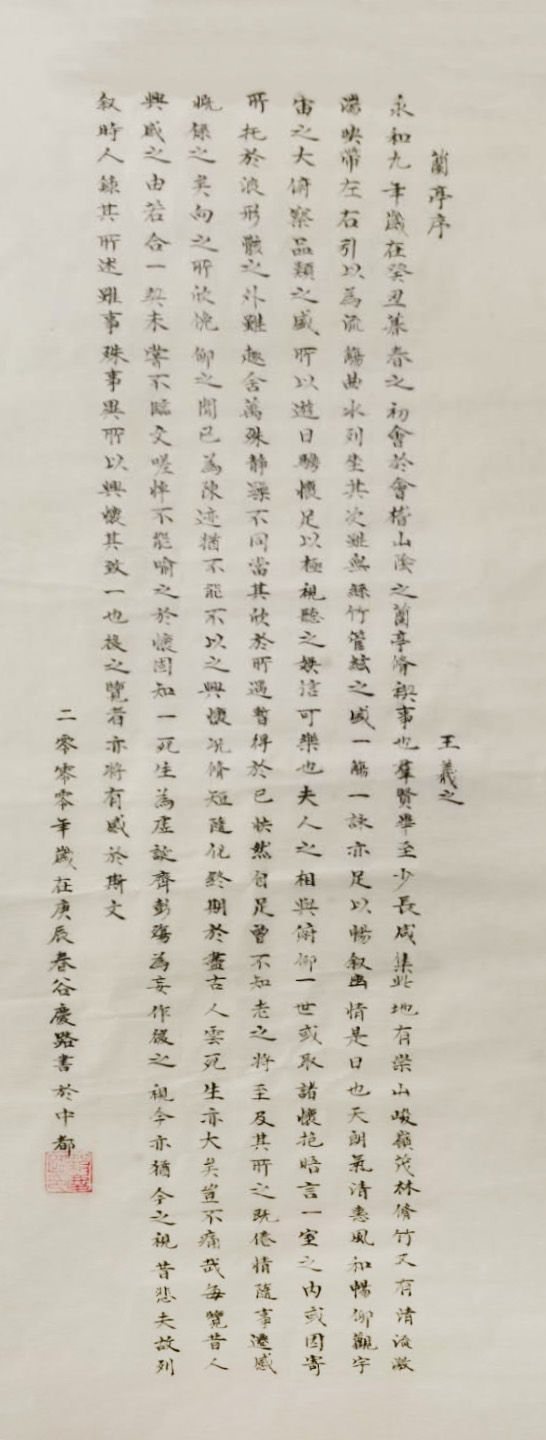 蘭亭序 王羲之
永和九年歲在癸丑暮春之初會於會稽山陰之蘭亭脩禊事也羣賢畢至少長咸集此地有崇山峻嶺茂林脩竹又有清流激
湍映帶左右引以為流觴曲水列坐其次雖無絲竹管絃之盛一觴一詠亦足以暢叙幽情是日也天朗氣清惠風和暢仰觀宇
宙之大俯察品類之盛所以遊目騁懷足以極視聽之娛信可樂也夫人之相與俯仰一世或取諸懷抱晤言一室之內或因寄
所托於浪形骸之外雖趣舍萬殊靜躁不同當其欣於所遇暫得於己怏然自足曾不知老之將至及其所之既倦情隨事遷感
慨係之矣向之所欣俛仰之間已為陳迹猶不能不以之興懷況脩短隨化終期於盡古人雲死生亦大矣豈不痛哉每覽昔人
興感之由若合一契未嘗不臨文嗟悼不能喻之於懷固知一死生為虛誕齊彭殤為妄作後之視今亦猶今之視昔悲夫故列
叙時人錄其所述雖事殊事異所以興懷其致一也後之覽者亦將有感於斯文
二零零零年歲在庚辰春谷慶路書於中都